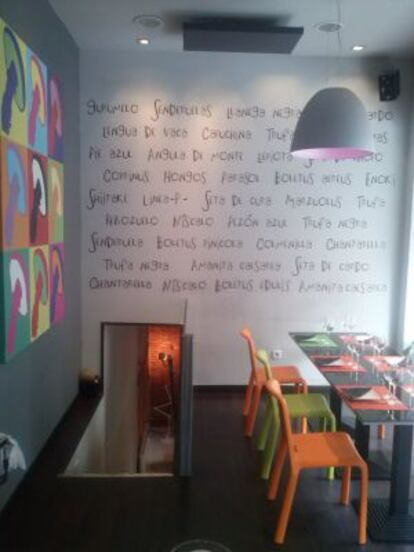 gurumelo Senderuelas Llanega negra cardo
Lengua de vaca Capuchina Trufa
Pie azul Angula de monte Lepiota Seta de chopo
Cominus Hongos Parasol Boletus aereus Enoki
Shiitake Lengua Seta de cura Marzuelos Trufa
Rebozuelo Níscalo Pezón azul Trufa negra
Senderuela Boletus pinicola Colmenilla Chantarella
Trufa negra Amanita caesarea Seta de cardo
Chantarella Níscalo Boletus edulis Amanita caesarea